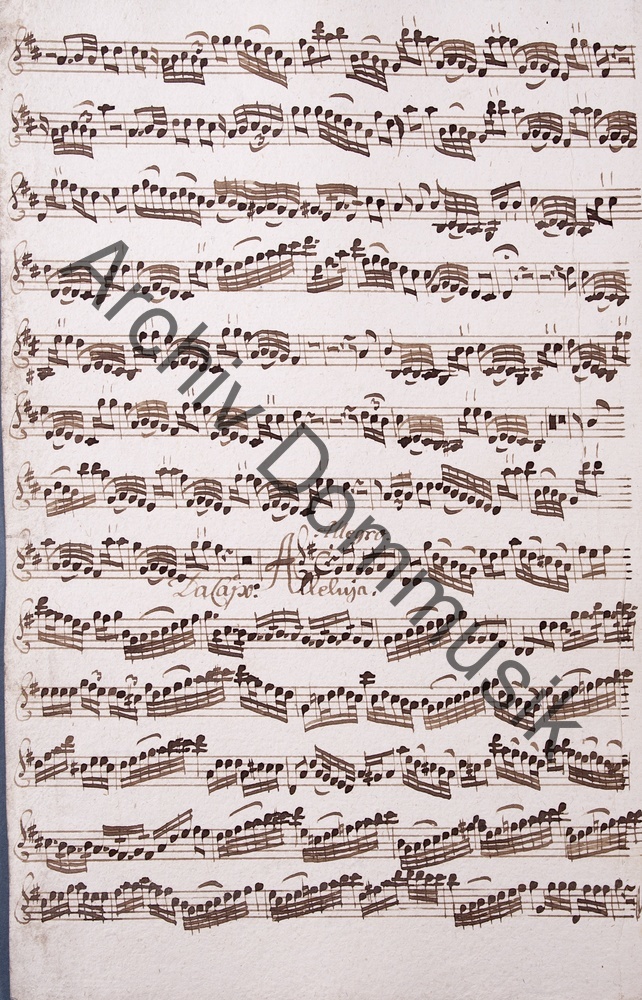 Allegro
Da Capo. Alleluja.
Archiv Dommusik